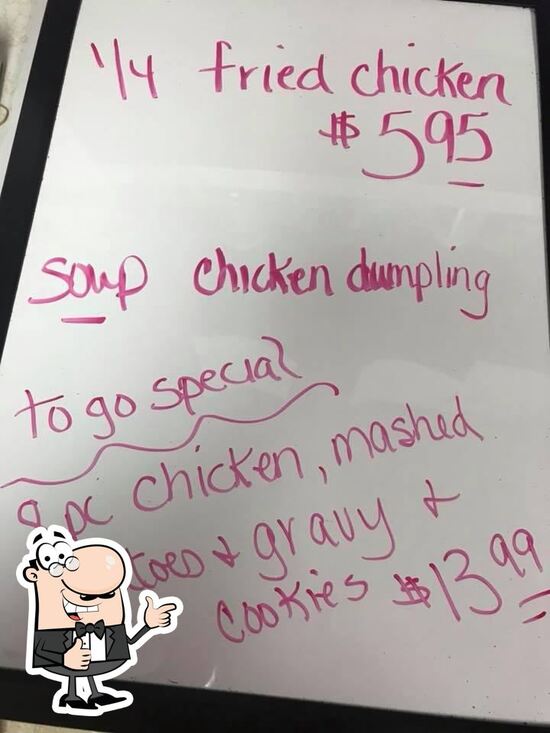 1/4 fried chicken
$ 5 95
soup chicken dumpling
to go special
8 pc chicken, mashed
toes + gravy +
cookies $13 99